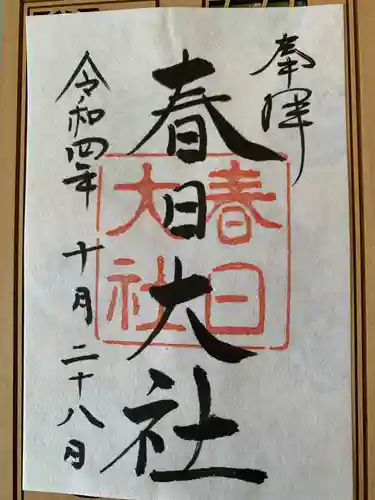 奉拝
春日大社
春日
大社
令和四年十月二十八日